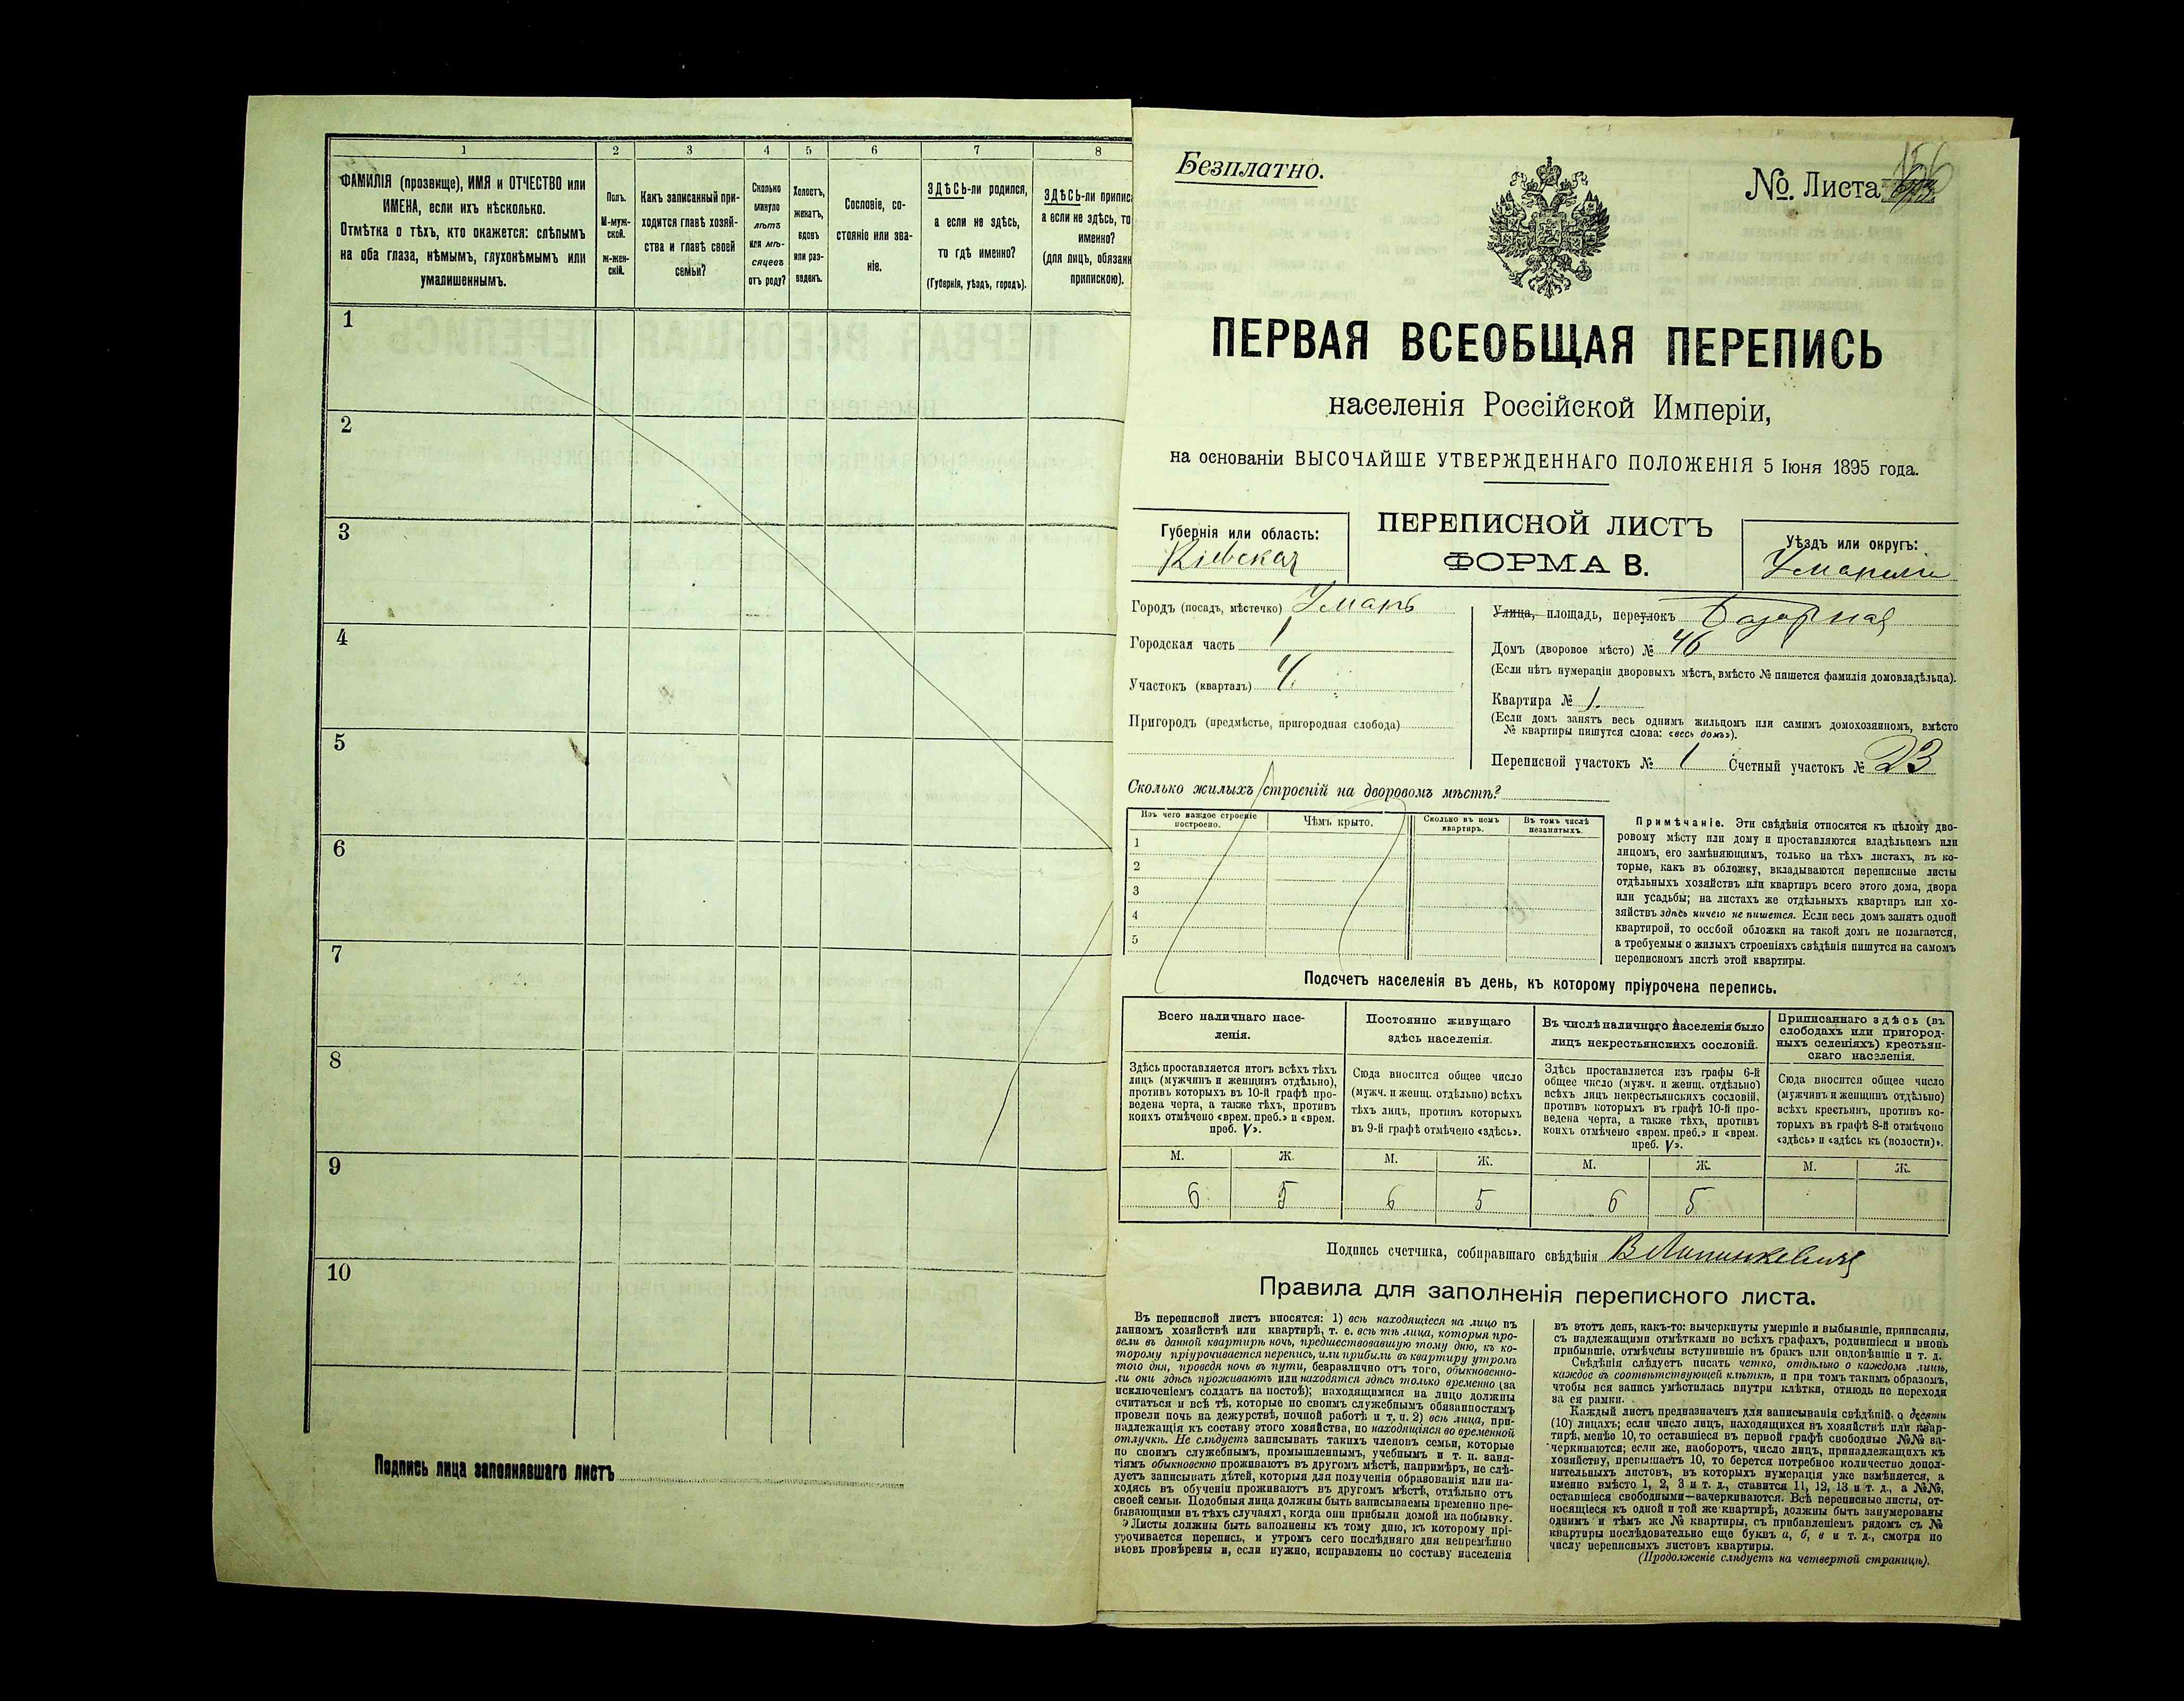 1 2 3 4 5 6 7 8
ФАМИЛІЯ (прозвище), ИМЯ и ОТЧЕСТВО или
ИМЕНА, если ихъ нѣсколько.
Отмѣтка о тѣхъ, кто окажется: слѣпымъ
на оба глаза, нѣмымъ, глухонѣмымъ или
умалишеннымъ.
Полъ.
М-муж-
ской.
Ж-жен-
скій.
Какъ записанный при-
ходится главѣ хозяй-
ства и главѣ своей
семьи?
Сколько
минуло
лѣтъ
или мѣ-
сяцевъ
отъ роду?
Холостъ,
женатъ,
вдовъ
или раз-
веденъ.
Сословіе, со-
стояніе или зва-
ніе.
ЗДѢСЬ-ли родился,
а если не здѣсь,
то гдѣ именно?
(Губернія, уѣздъ, городъ).
ЗДѢСЬ-ли припис
а если не здѣсь, то
именно?
(для лицъ, обязанн
припискою).
1
2
3
4
5
6
7
8
9
10
Подпись лица заполнявшаго листъ
Безплатно.
№ Листа 156
ПЕРВАЯ ВСЕОБЩАЯ ПЕРЕПИСЬ
населенія Россійской Имперіи,
на основаніи ВЫСОЧАЙШЕ УТВЕРЖДЕННАГО ПОЛОЖЕНІЯ 5 Іюня 1895 года.
Губернія или область:
Кіевская
ПЕРЕПИСНОЙ ЛИСТЪ
ФОРМА В.
Уѣздъ или округъ:
Уманскій
Городъ (посадъ, мѣстечко) Умань
Городская часть 1
Участокъ (кварталъ) 4.
Пригородъ (предмѣстье, пригородная слобода)
Улица, площадь, переулокъ Базарная
Домъ (дворовое мѣсто) № 46
(Если нѣтъ нумераціи дворовыхъ мѣстъ, вмѣсто № пишется фамилія домовладѣльца).
Квартира № 1.
(Если домъ занятъ весь однимъ жильцомъ или самимъ домохозяиномъ, вмѣсто
№ квартиры пишутся слова: «весь домъ»).
Переписной участокъ № 1 Счетный участокъ № 23
Сколько жилыхъ строеній на дворовомъ мѣстѣ?
Изъ чего каждое строеніе
построено.
Чѣмъ крыто.
Сколько въ немъ
квартиръ.
Въ томъ числѣ
незанятыхъ.
1
2
3
4
5
Примѣчаніе. Эти свѣдѣнія относятся къ цѣлому дво-
ровому мѣсту или дому и проставляются владѣльцемъ или
лицомъ, его замѣняющимъ, только на тѣхъ листахъ, въ ко-
торые, какъ въ обложку, вкладываются переписные листы
отдѣльныхъ хозяйствъ или квартиръ всего этого дома, двора
или усадьбы; на листахъ же отдѣльныхъ квартиръ или хо-
зяйствъ здѣсь ничего не пишется. Если весь домъ занятъ одной
квартирой, то особой обложки на такой домъ не полагается,
а требуемыя о жилыхъ строеніяхъ свѣдѣнія пишутся на самомъ
переписномъ листѣ этой квартиры.
Подсчетъ населенія въ день, къ которому пріурочена перепись.
Всего наличнаго насе-
ленія.
Здѣсь проставляется итогъ всѣхъ тѣхъ
лицъ (мужчинъ и женщинъ отдѣльно),
противъ которыхъ въ 10-й графѣ про-
ведена черта, а также тѣхъ, противъ
коихъ отмѣчено «врем. преб.» и «врем.
преб. V».
Постоянно живущаго
здѣсь населенія.
Сюда вносится общее число
(мужч. и женщ. отдѣльно) всѣхъ
тѣхъ лицъ, противъ которыхъ
въ 9-й графѣ отмѣчено «здѣсь».
Въ числѣ наличнаго населенія было
лицъ некрестьянскихъ сословій.
Здѣсь проставляется изъ графы 6-й
общее число (мужч. и женщ. отдѣльно)
всѣхъ лицъ некрестьянскихъ сословій,
противъ которыхъ въ графѣ 10-й про-
ведена черта, а также тѣхъ, противъ
коихъ отмѣчено «врем. преб.» и «врем.
преб. V».
Приписаннаго здѣсь (въ
слободахъ или пригород-
ныхъ селеніяхъ) крестьян-
скаго населенія.
Сюда вносится общее число
(мужчинъ и женщинъ отдѣльно)
всѣхъ крестьянъ, противъ ко-
торыхъ въ графѣ 8-й отмѣчено
«здѣсь» и «здѣсь къ (волости)».
М. Ж. М. Ж. М. Ж. М. Ж.
6 5 6 5 6 5
Подпись счетчика, собиравшаго свѣдѣнія
Правила для заполненія переписного листа.
Въ переписной листъ вносятся: 1) всѣ находящіеся на лицо въ
данномъ хозяйствѣ или квартирѣ, т. е. всѣ тѣ лица, которыя про-
вели въ данной квартирѣ ночь, предшествовавшую тому дню, къ ко-
торому пріурочивается перепись, или прибыли въ квартиру утромъ
того дня, проведя ночь въ пути, безразлично отъ того, обыкновенно-
ли они здѣсь проживаютъ или находятся здѣсь только временно (за
исключеніемъ солдатъ на постоѣ); находящимися на лицо должны
считаться и всѣ тѣ, которые по своимъ служебнымъ обязанностямъ
провели ночь на дежурствѣ, ночной работѣ и т. п. 2) всѣ лица, при-
надлежащія къ составу этого хозяйства, но находящіяся во временной
отлучкѣ. Не слѣдуетъ записывать такихъ членовъ семьи, которые
по своимъ служебнымъ, промышленнымъ, учебнымъ и т. п. заня-
тіямъ обыкновенно проживаютъ въ другомъ мѣстѣ, напримѣръ, не слѣ-
дуетъ записывать дѣтей, которыя для полученія образованія или на-
ходясь въ обученіи проживаютъ въ другомъ мѣстѣ, отдѣльно отъ
своей семьи. Подобныя лица должны быть записываемы временно пре-
бывающими въ тѣхъ случаяхъ, когда они прибыли домой на побывку.
Листы должны быть заполнены къ тому дню, къ которому прі-
урочивается перепись, и утромъ сего послѣдняго дня непремѣнно
вновь провѣрены и, если нужно, исправлены по составу населенія
въ этотъ день, какъ-то: вычеркнуты умершіе и выбывшіе, приписаны,
съ надлежащими отмѣтками во всѣхъ графахъ, родившіеся и вновь
прибывшіе, отмѣчены вступившіе въ бракъ или овдовѣвшіе и т. д.
Свѣдѣнія слѣдуетъ писать четко, отдѣльно о каждомъ лицѣ,
каждое въ соотвѣтствующей клѣткѣ, и при томъ такимъ образомъ,
чтобы вся запись умѣстилась внутри клѣтки, отнюдь не переходя
за ея рамки.
Каждый листъ предназначенъ для записыванія свѣдѣній о десяти
(10) лицахъ; если число лицъ, находящихся въ хозяйствѣ или квар-
тирѣ, менѣе 10, то оставшіеся въ первой графѣ свободные №№ за-
черкиваются; если же, наоборотъ, число лицъ, принадлежащихъ къ
хозяйству, превышаетъ 10, то берется потребное количество допол-
нительныхъ листовъ, въ которыхъ нумерація уже измѣняется, а
именно вмѣсто 1, 2, 3 и т. д., ставится 11, 12, 13 и т. д., а №№,
оставшіеся свободными—зачеркиваются. Всѣ переписные листы, от-
носящіеся къ одной и той же квартирѣ, должны быть занумерованы
однимъ и тѣмъ же № квартиры, съ прибавленіемъ рядомъ съ №
квартиры послѣдовательно еще буквъ а, б, в и т. д., смотря по
числу переписныхъ листовъ квартиры.
(Продолженіе слѣдуетъ на четвертой страницѣ).